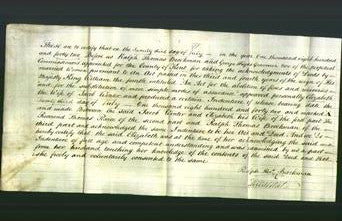 These are to certify that on the twenty third day of July in the year One thousand eight hundred
and forty two before us Ralph Thomas Brockman and George Gipps two of the perpetual
Commissioners appointed for the County of Kent for taking the acknowledgments of Deeds by
married Women pursuant to an Act passed in the third and fourth years of the reign of His
Majesty King William the fourth intituled An Act for the abolition of fines and recoveries
and for the substitution of more simple modes of assurance appeared personally Elizabeth
the Wife of and produced a certain Indenture of release bearing date the
twenty third day of July One thousand eight hundred and forty two and marked A
and made between the said and Elizabeth his Wife of the first part
Thomas of the second part and Ralph Thomas Brockman of the
third part and acknowledged the same Indenture to be her Act and Deed And we Do
hereby certify that the said Elizabeth was at the time of her acknowledging the said
Indenture of full age and competent understanding and was examined by us apart
from her husband touching her knowledge of the contents of the said Deed and that
she freely and voluntarily consented to the same
Ralph Tho Brockman